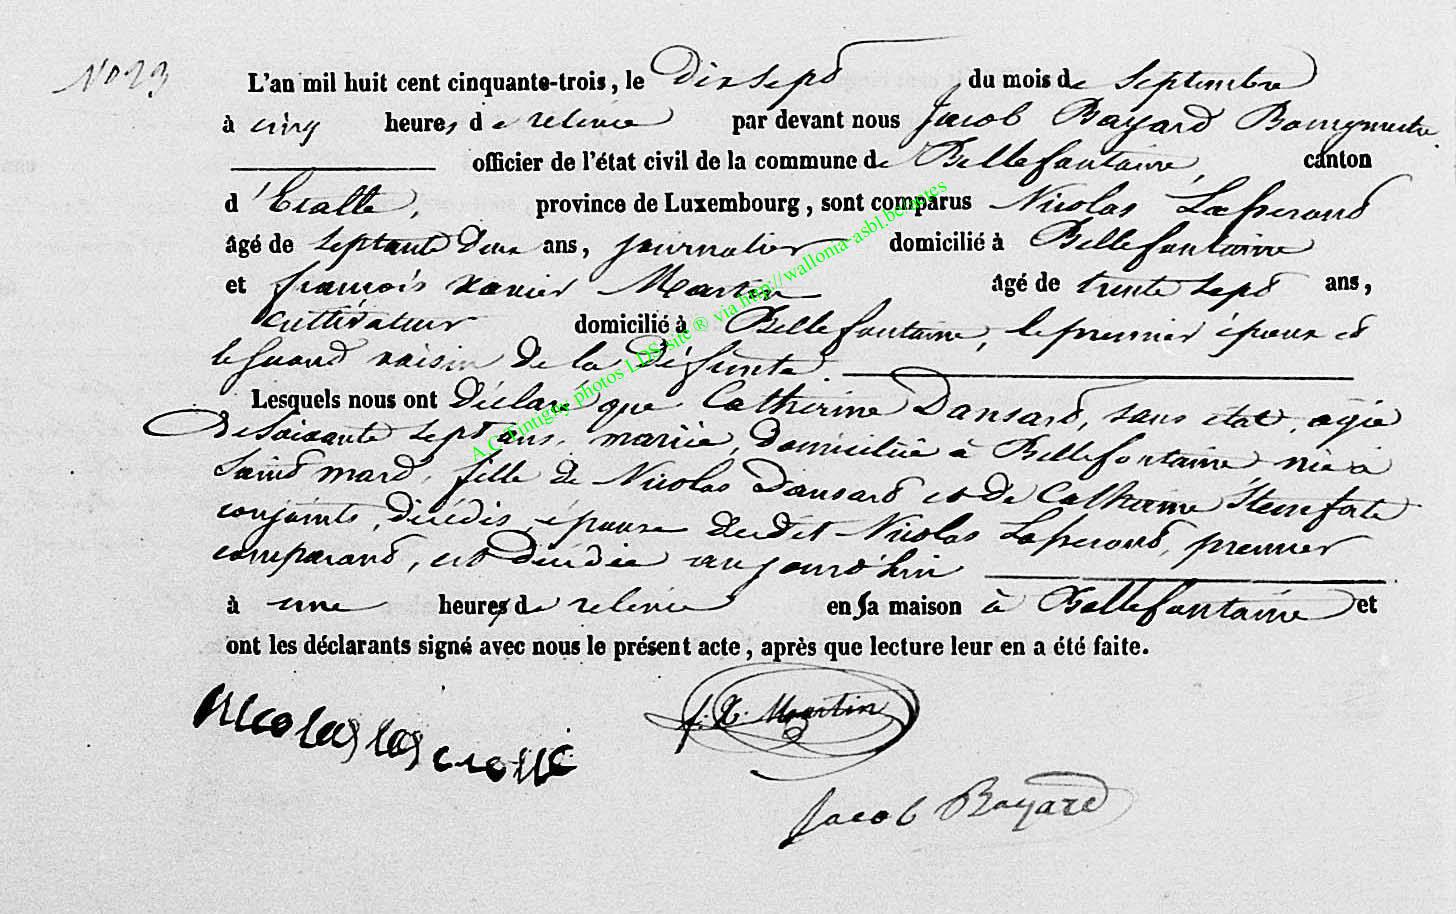 No 23
L'an mil huit cent cinquante-trois, le Dix sept du mois de Septembre
à cinq heures de relevée par devant nous Jacob Bayard Bourgmestre
officier de l'état civil de la commune de Bellefontaine, canton
d'Etalle, province de Luxembourg, sont comparus Nicolas
âgé de septante deux ans, journalier domicilié à Bellefontaine
et françois xavier Martin âgé de trente sept ans,
cultivateur domicilié à Bellefontaine, le premier époux et
le second voisin de la Défunte.
Lesquels nous ont Déclaré que Catherine Dansard, sans état, agée
de soixante sept ans, mariée, domiciliée à Bellefontaine née à
Saint mard, fille de Nicolas Dansard et de Catherine
conjoints, décédés, épouse dudit Nicolas premier
comparant, est décédée aujourd'hui
à une heures de relevée en sa maison à Bellefontaine et
ont les déclarants signé avec nous le présent acte, après que lecture leur en a été faite.
A.C. Tintigny photos LDS site ® via http://wallonia-asbl.be/antes
Nicolas
f. X. Martin
Jacob Bayard